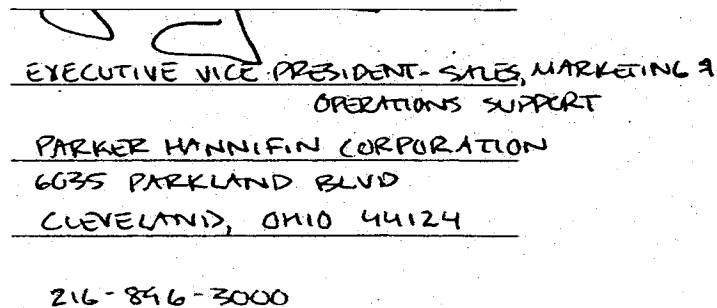 EXECUTIVE VICE PRESIDENT- SALES, MARKETING &
OPERATIONS SUPPORT
PARKER HANNIFIN CORPORATION
6035 PARKLAND BLVD
CLEVELAND, OHIO 44124
216-896-3000